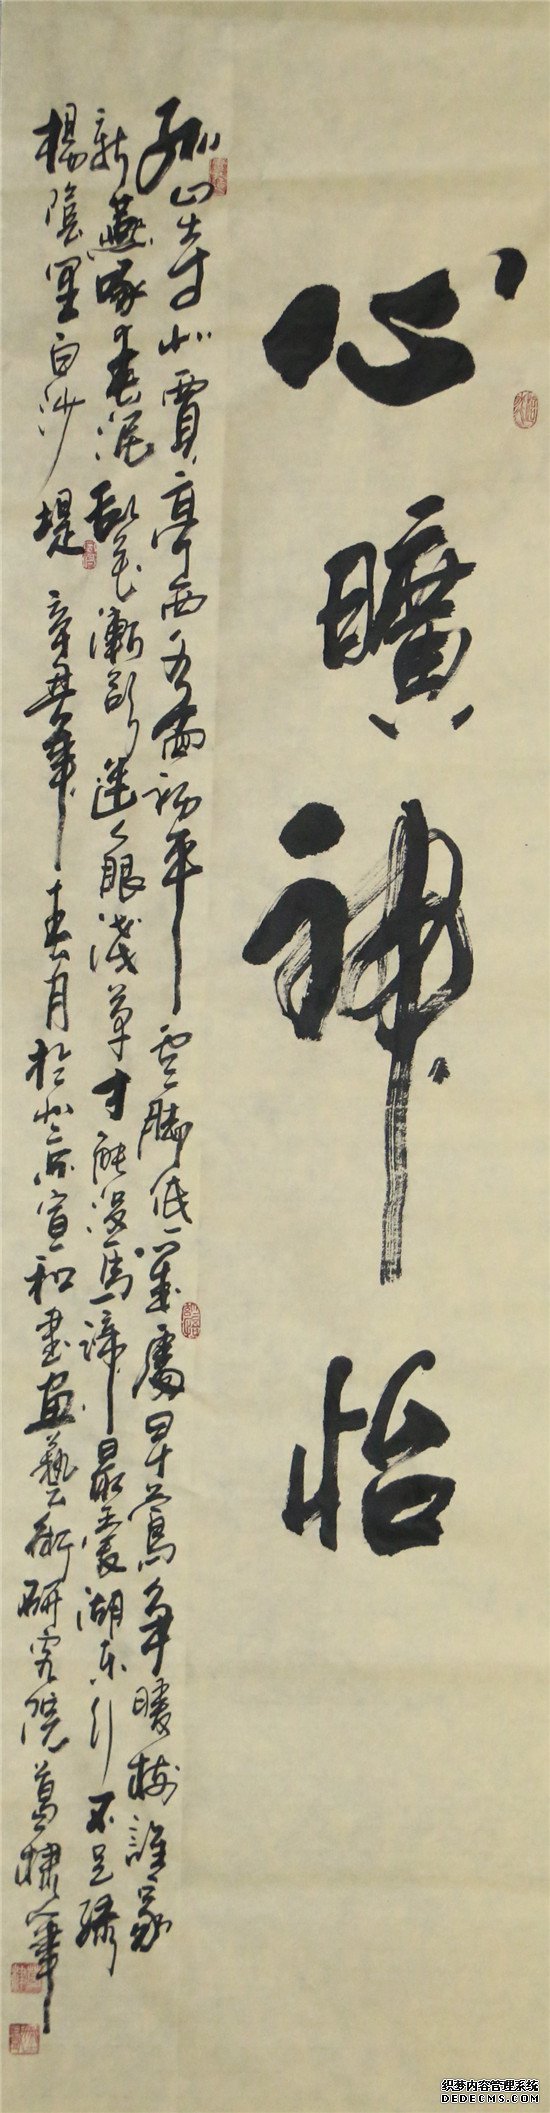 心曠神怡
孤山寺北賈亭西水面初平雲腳低幾處早鶯爭暖樹誰家
新燕啄春泥亂花漸欲迷人眼淺草才能沒馬蹄最愛湖東行不足綠
楊陰里白沙堤 年春月於北京宣和書畫藝術研究院葛
织梦内容管理系统
DEDECMS.COM